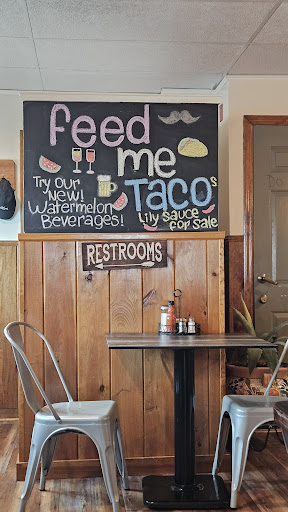 feed
me
TACOs
Try Our
New!
Watermelon
Beverages!
Lily Sauce
for Sale
RESTROOMS